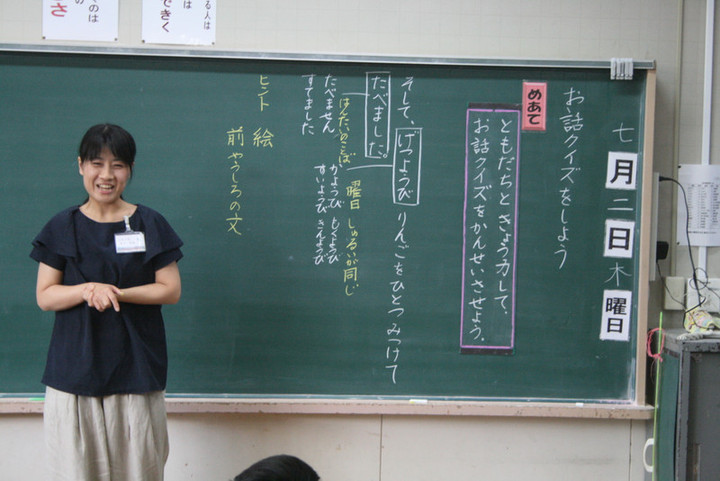 七月二日木曜日
お話クイズをしよう
めあて
ともだちときょう力して、
お話クイズをかんせいさせよう。
そして、げつようび りんごをひとつみつけて
たべました。
はんたいのことば
たべません
すてました
曜日 しゅるいが同じ
かようび もくようび
すいようび きんようび
ヒント 絵
前やうしろの文
る人は
は
できく
のは
の
さ